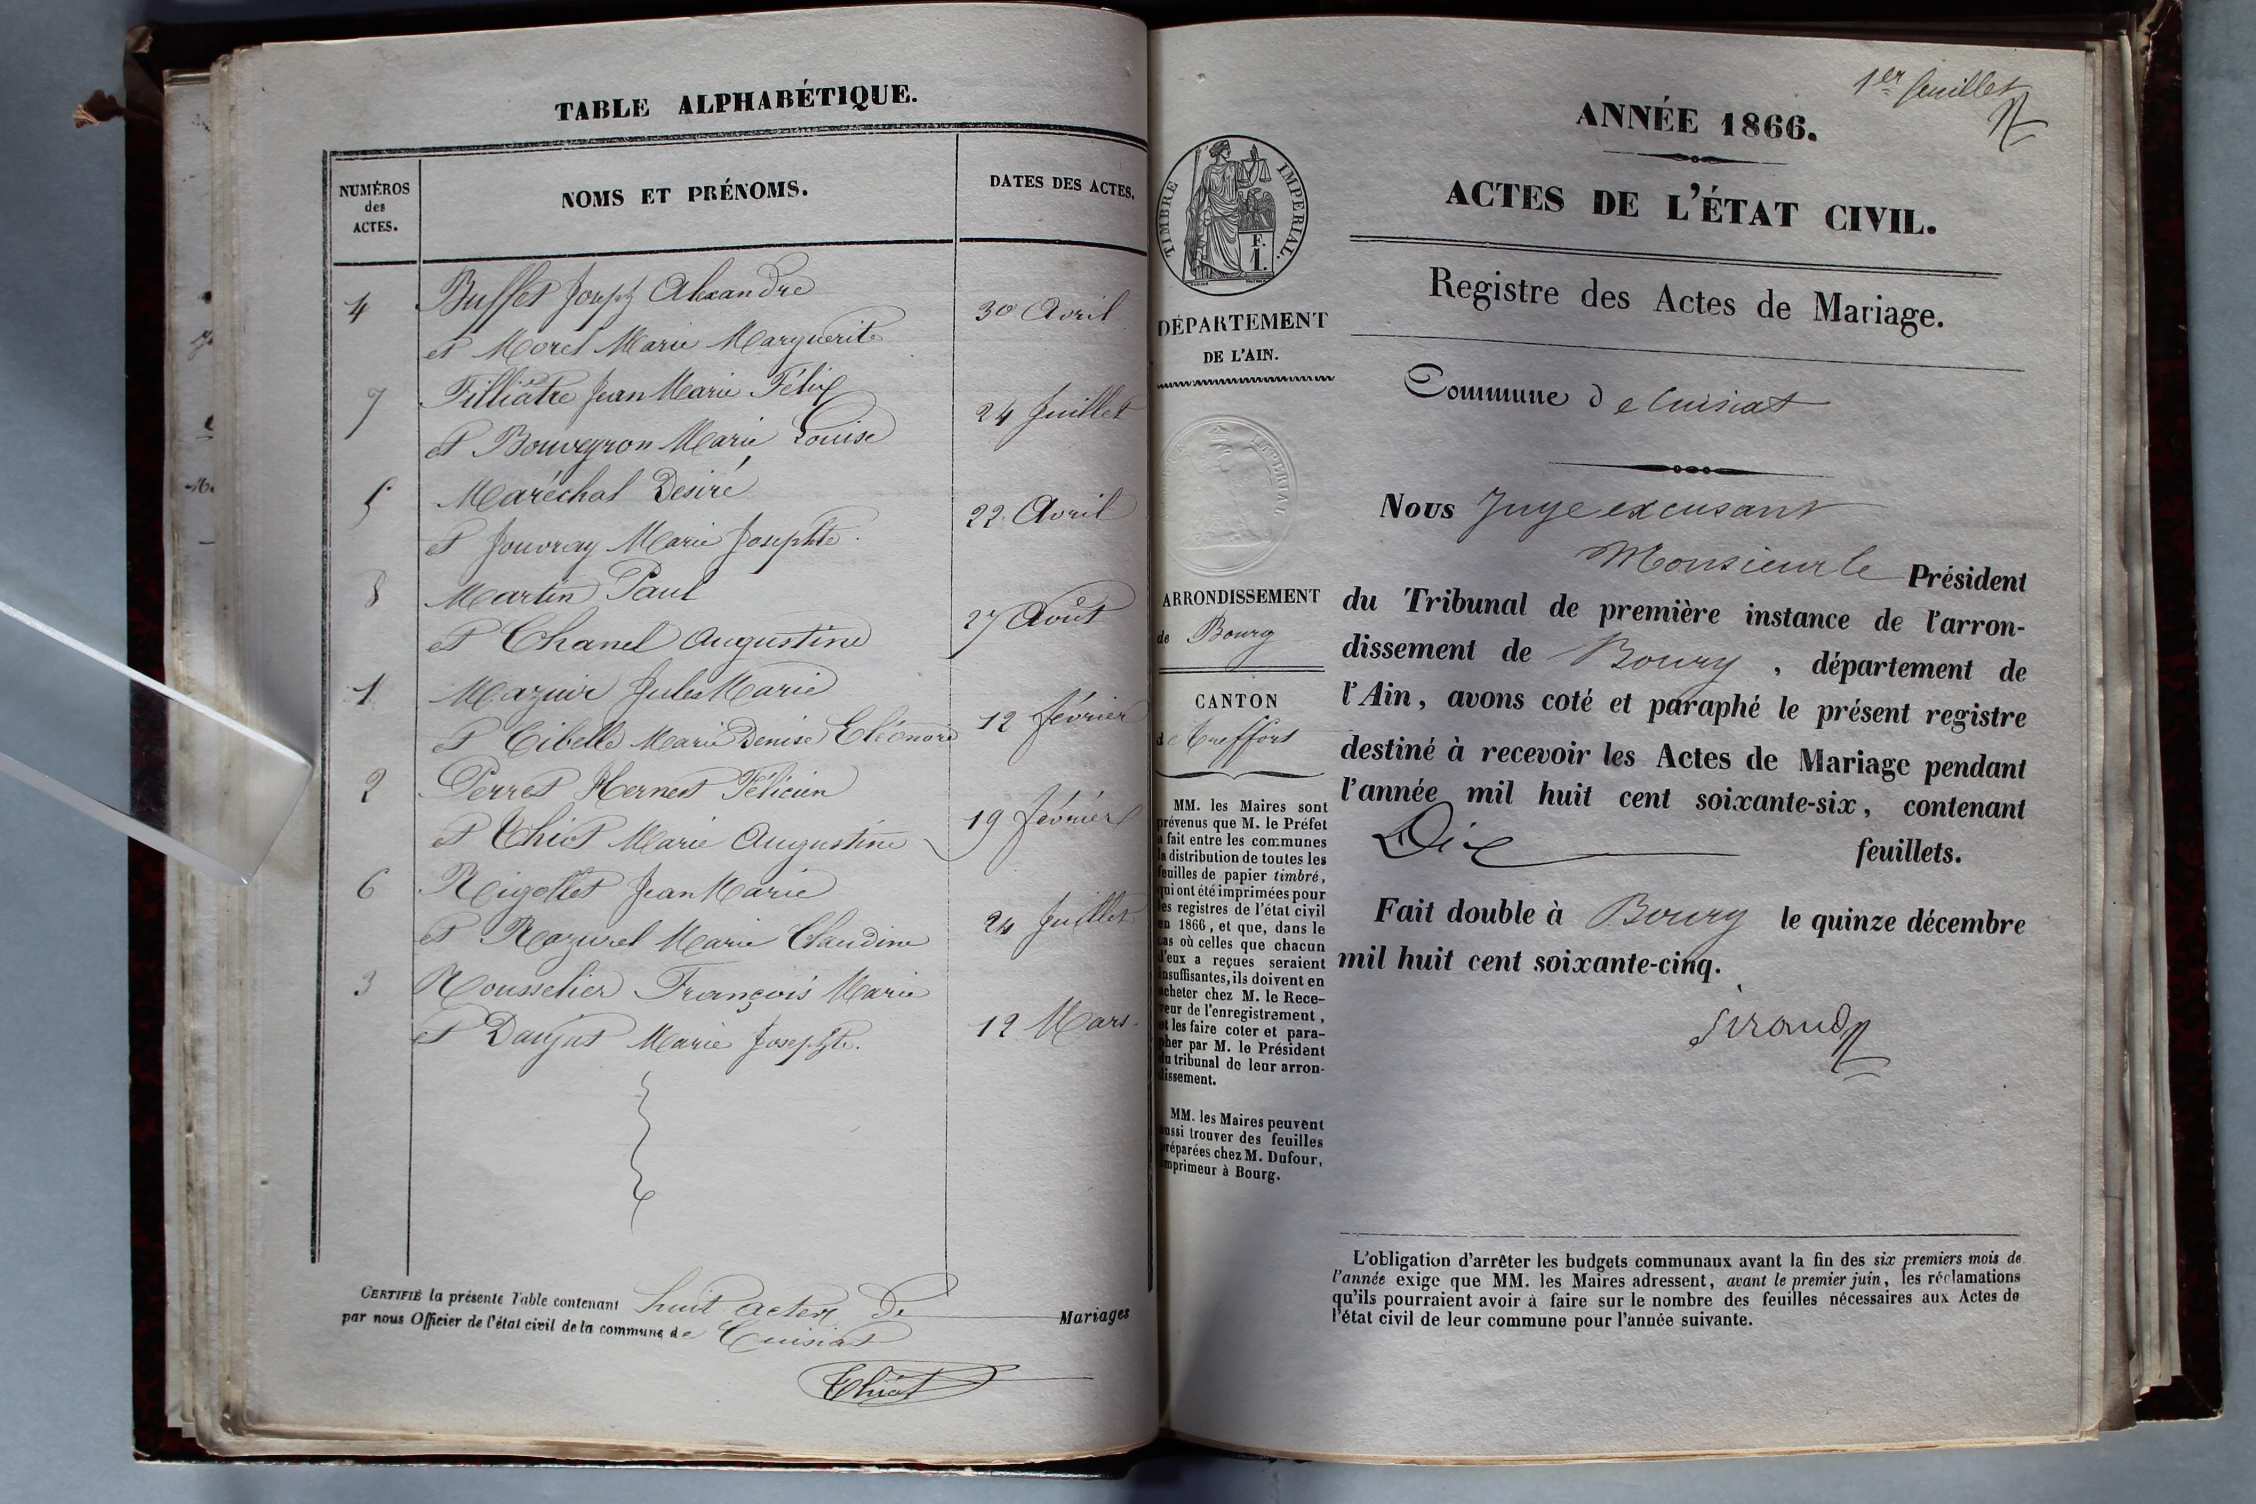 TABLE ALPHABÉTIQUE.
NUMÉROS
des
ACTES.
NOMS ET PRÉNOMS.
DATES DES ACTES.
4 Buffet Joseph Alexandre
et Morel Marie Marguerite
30 Avril
7 Filliâtre Jean Marie Félix
et Bouveyron Marie Louise
24 Juillet
5 Maréchal Desiré
et Jouvray Marie Josephte.
22 Avril
8 Martin Paul
et Chanel Augustine
27 Août
1 Mazuir Jules Marie
et Cibelle Marie Denise Eléonore
12 février
2 Perret Hernest Félicien
et Thiot Marie Augustine
19 février
6 Rigollet Jean Marie
et Razurel Marie Claudine
24 Juillet
3 Rousselier François Marie
et Daujat Marie Josephte.
12 Mars.
CERTIFIÉ la présente Table contenant huit actes de Mariages
par nous Officier de l'état civil de la commune de Cuisiat
Thiot
1er feuillet
ANNÉE 1866.
ACTES DE L'ÉTAT CIVIL.
Registre des Actes de Mariage.
Commune de Cuisiat
TIMBRE IMPÉRIAL.
F.
1.
DÉPARTEMENT
DE L'AIN.
ARRONDISSEMENT
de Bourg
CANTON
de Treffort
MM. les Maires sont
prévenus que M. le Préfet
a fait entre les communes
la distribution de toutes les
feuilles de papier timbré,
qui ont été imprimées pour
les registres de l'état civil
en 1866, et que, dans le
cas où celles que chacun
d'eux a reçues seraient
insuffisantes, ils doivent en
acheter chez M. le Rece-
veur de l'enregistrement,
et les faire coter et para-
pher par M. le Président
du tribunal de leur arron-
dissement.
MM. les Maires peuvent
aussi trouver des feuilles
préparées chez M. Dufour,
imprimeur à Bourg.
Nous Juge excusant
Monsieur le Président
du Tribunal de première instance de l'arron-
dissement de Bourg, département de
l'Ain, avons coté et paraphé le présent registre
destiné à recevoir les Actes de Mariage pendant
l'année mil huit cent soixante-six, contenant
Dix feuillets.
Fait double à Bourg le quinze décembre
mil huit cent soixante-cinq.
Giraud
L'obligation d'arrêter les budgets communaux avant la fin des six premiers mois de
l'année exige que MM. les Maires adressent, avant le premier juin, les réclamations
qu'ils pourraient avoir à faire sur le nombre des feuilles nécessaires aux Actes de
l'état civil de leur commune pour l'année suivante.